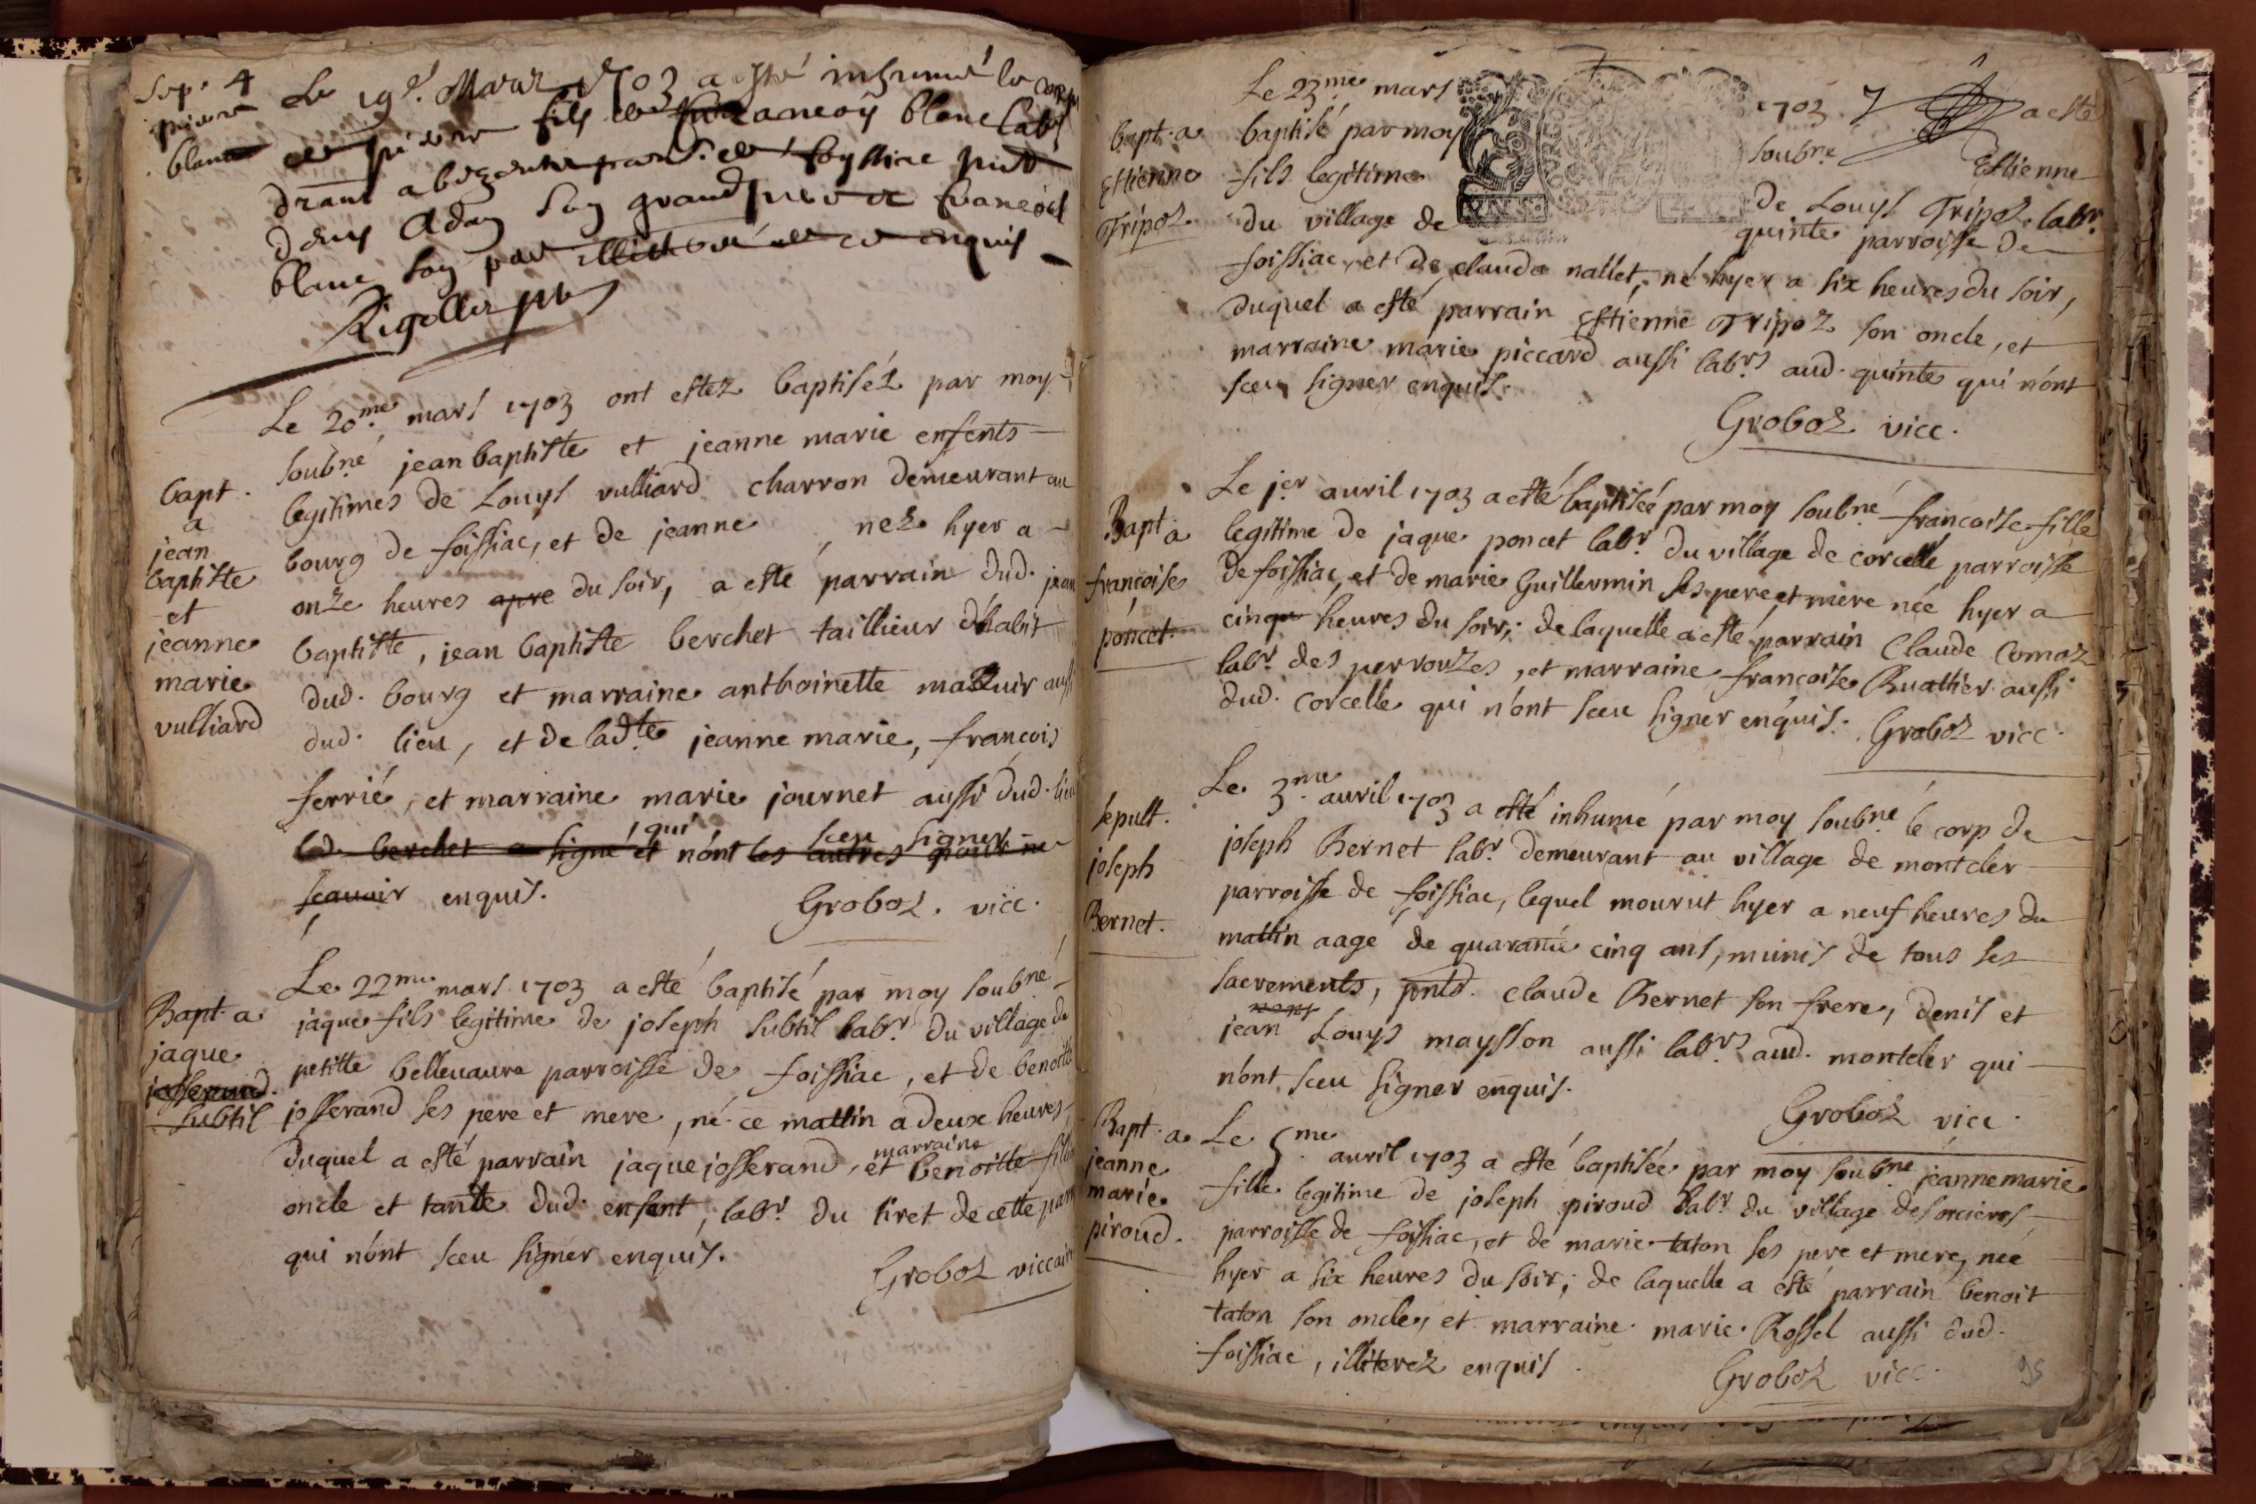 Sep. 4
pierre
blanc
Le 19e. Mars 1703 a esté inhumé le corps
de pierre fils de francois blanc labr
drant a bezentet par.se de foyssiac pnt
denys Adam son grand pere et francois
blanc son pere illitteré de ce enquis
Rigollet ptre
bapt.
a
jean
baptiste
et
jeanne
marie
vulliard
Le 20.me mars 1703 ont estez baptiséz par moy
soub.né jean baptiste et jeanne marie enfents
legitimes de Louys vulliard charron demeurant au
bourg de foissiac, et de jeanne , nez hyer a
onze heures apre du soir, a esté parrain dud. jean
baptiste, jean baptiste berchet taillieur d'habit
dud. bourg et marraine anthoinette mazuir aussi
dud. lieu, et de lad.te jeanne marie, françois
ferrié, et marraine marie journet aussi dud. lieu
qui sceu signer
led. berchet a signé et n'ont les autres pour ne
scavoir enquis.
Groboz. vicc.
Bapt. a
jaque
josserand.
subtil
Le 22me mars 1703 a esté baptisé par moy soubné
jaque fils legitime de joseph subtil labr. du village de
petitte bellevavre parroisse de foissiac, et de benoitte
josserand ses pere et mere, né ce mattin a deux heures
marraine
duquel a esté parrain jaque josserand, et benoitte fille
oncle et tantte dud. enfent, labr. du tiret de cette parr
qui n'ont sceu signer enquis.
Groboz viccaire
Bapt. a
Estienne
Tripoz.
Le 23me mars 1703. 7 a esté
baptisé par moy soubné Estienne
fils legitime de Louys Tripoz labr.
du village de quinte parroisse de
foissiac, et de clauda nallet, né hyer a six heures du soir,
duquel a esté parrain Estienne Tripoz son oncle, et
marraine marie piccard aussi labrs aud. quinte qui n'ont
sceu signer enquis.
Groboz vicc.
Bapt a
françoise
poncet.
Le jer avril 1703 a esté baptisée par moy soubné francoise fille
legitime de jaque poncet labr. du village de corcelle parroisse
de foissiac, et de marie Guillermin ses pere et mere née hyer a
cinqu heures du soir; de laquelle a esté parrain Claude Comaz
labr. des perrouzes, et marraine francoise Ruattier aussi
dud. corcelle qui n'ont sceu signer enquis. Groboz vicc.
sepult.
joseph
Bernet.
Le 3.me avril 1703 a esté inhumé par moy soubné le corp de
joseph Bernet labr. demeurant au village de montcler
parroisse de foissiac, lequel mourut hyer a neuf heures du
mattin aagé de quarante cinq ans, munis de tous ses
sacrements, pntd. claude Bernet son frere, denis et
jean Louys maysson aussi labrs aud. montcler qui
n'ont sceu signer enquis.
Groboz vicc.
Bapt. a
jeanne
marie
piroud.
Le 5.me avril 1703 a esté baptisée par moy soubné jeanne marie
fille legitime de joseph piroud labr du village de sorcieres
parroisse de foissiac, et de marie taton ses pere et mere, née
hyer a six heures du soir; de laquelle a esté parrain benoit
taton son oncle, et marraine marie Rossel aussi dud.
foissiac, illiterez enquis.
Groboz vicc.